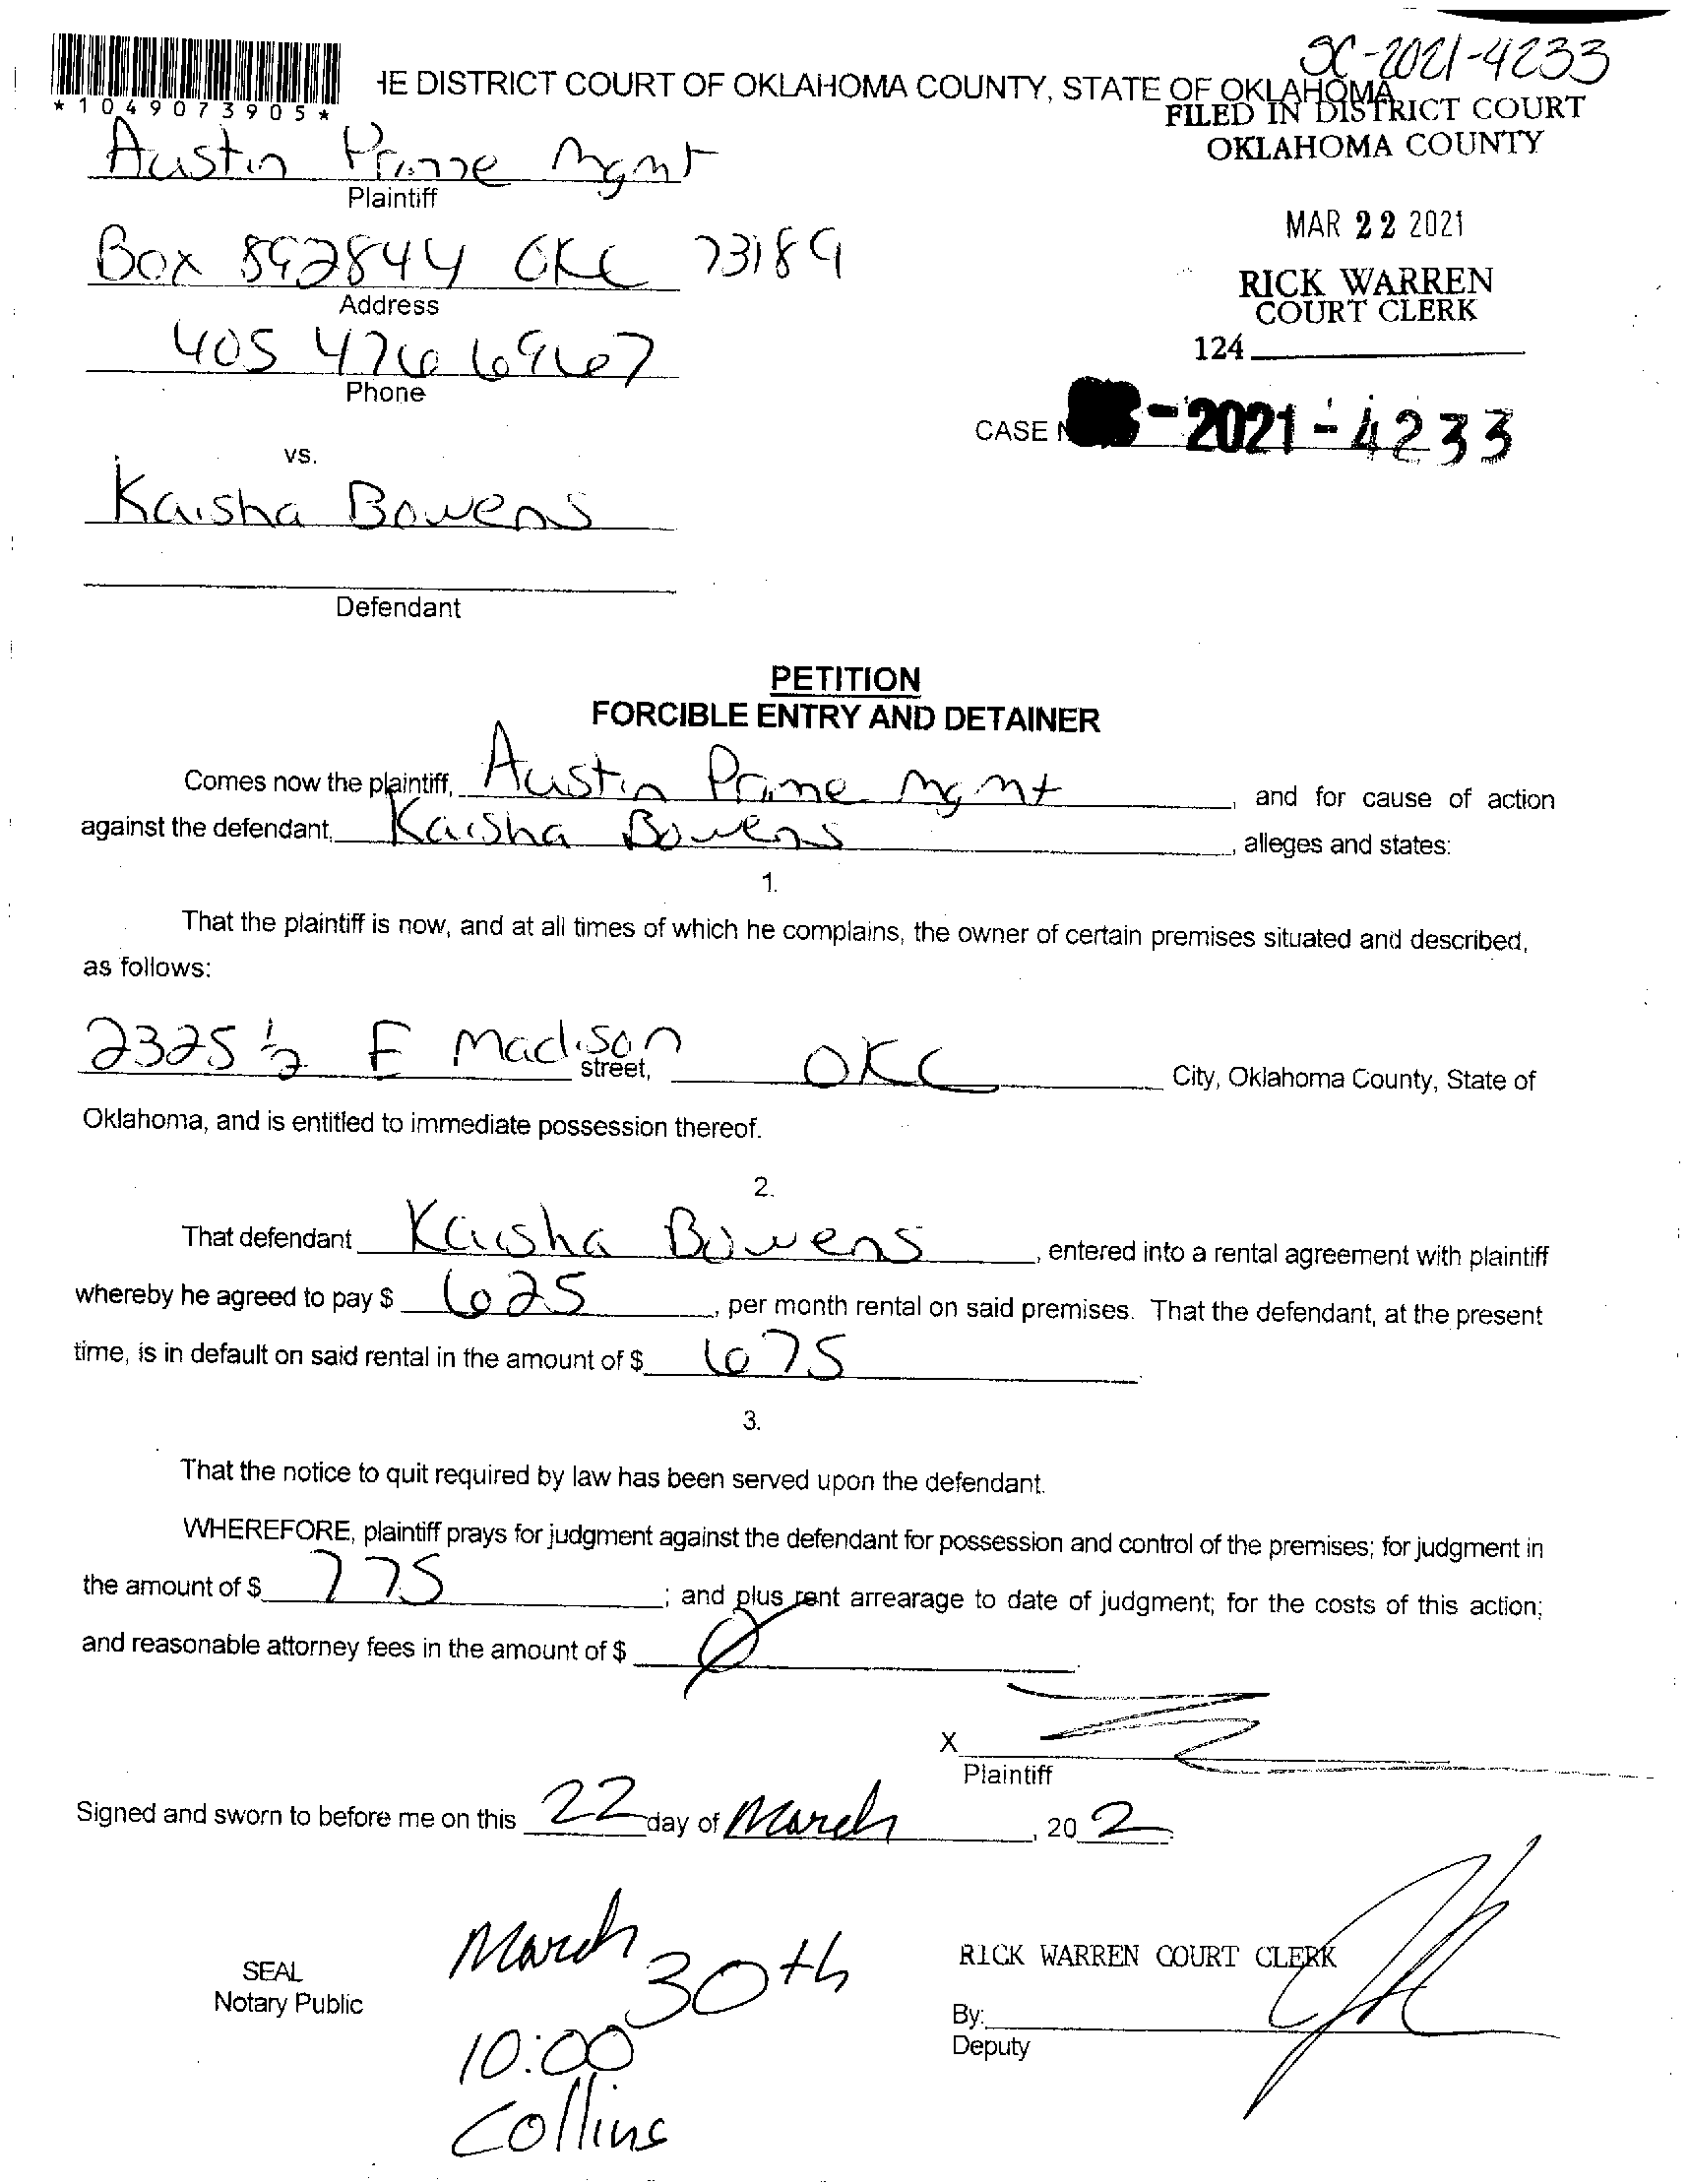 SC-2021-4233
HE DISTRICT COURT OF OKLAHOMA COUNTY, STATE OF OKLAHOMA
*1049073905*
FILED IN DISTRICT COURT
OKLAHOMA COUNTY
Austin Prime Mgmt
Plaintiff
MAR 22 2021
Box 892844 OKC 73189
Address
RICK WARREN
COURT CLERK
405 476 6967
Phone
124
CASE N -2021-4233
vs.
Kaisha Bowens
Defendant
PETITION
FORCIBLE ENTRY AND DETAINER
Comes now the plaintiff, Austin Prime Mgmt, and for cause of action
against the defendant, Kaisha Bowens, alleges and states:
1.
That the plaintiff is now, and at all times of which he complains, the owner of certain premises situated and described,
as follows:
2325 ½ E Madison street, OKC City, Oklahoma County, State of
Oklahoma, and is entitled to immediate possession thereof.
2.
That defendant Kaisha Bowens, entered into a rental agreement with plaintiff
whereby he agreed to pay $ 625, per month rental on said premises. That the defendant, at the present
time, is in default on said rental in the amount of $ 675
3.
That the notice to quit required by law has been served upon the defendant.
WHEREFORE, plaintiff prays for judgment against the defendant for possession and control of the premises; for judgment in
the amount of $ 775; and plus rent arrearage to date of judgment; for the costs of this action;
and reasonable attorney fees in the amount of $ Ø.
X
Plaintiff
Signed and sworn to before me on this 22 day of March, 20 2.
March 30th
SEAL
Notary Public
RICK WARREN COURT CLERK
10:00
By:
Deputy
Collins